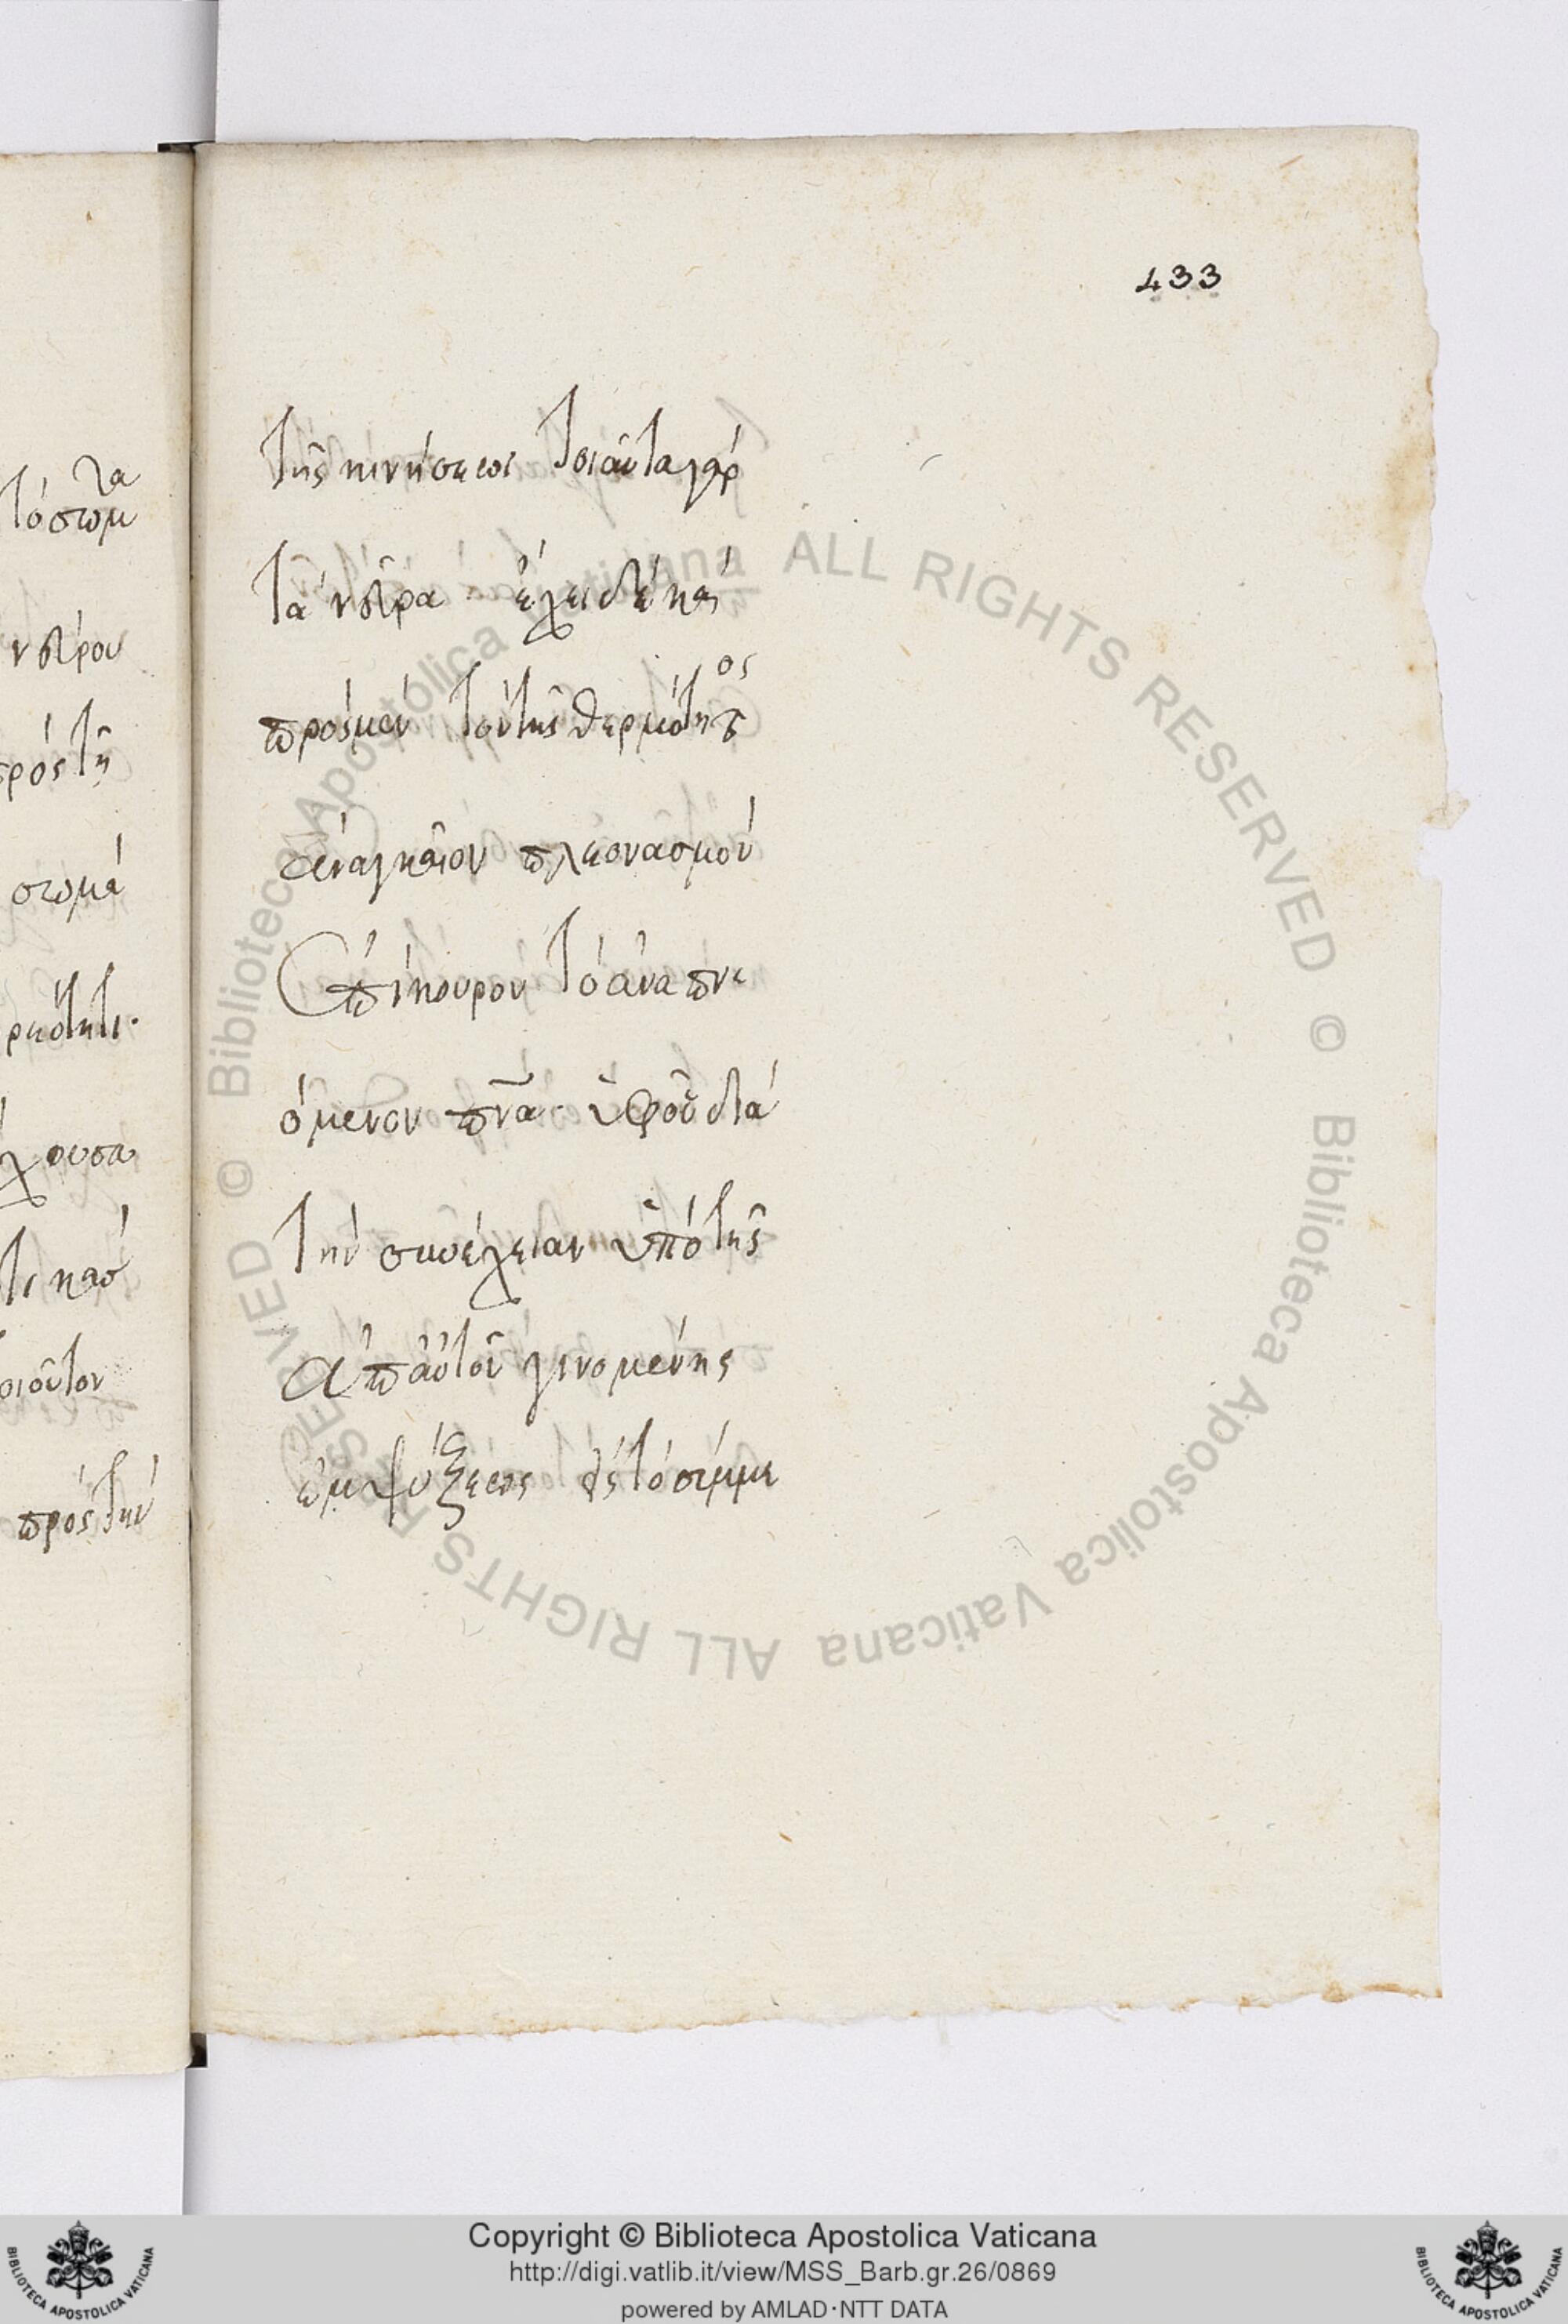 433
τῆς κινήσεως τοιαῦτα γὰρ
τὰ νεῦρα. ἔχει δὲ καὶ
πρὸς μὲν τὸν τῆς θερμότητος
ἀναγκαῖον πλεονασμὸν
ἐπίκουρον τὸ ἀναπνε
όμενον πνα. ὑφ οὗ διὰ
τὴν συνέχειαν ὑπὸ τῆς
ἀπ αὐτοῦ γινομένης
ἐμψύξεως εἰς τὸ σύμμε
τα
τόσωμ
νεύρου
πρὸς τῇ
σωμα
χουσα
τι και
οιοῦτον
πρὸς τὴν
© Biblioteca Apostolica Vaticana ALL RIGHTS RESERVED © Biblioteca Apostolica Vaticana ALL RIGHTS RESERVED
BIBLIOTECA APOSTOLICA VATICANA
Copyright © Biblioteca Apostolica Vaticana
http://digi.vatlib.it/view/MSS_Barb.gr.26/0869
powered by AMLAD·NTT DATA
BIBLIOTECA APOSTOLICA VATICANA